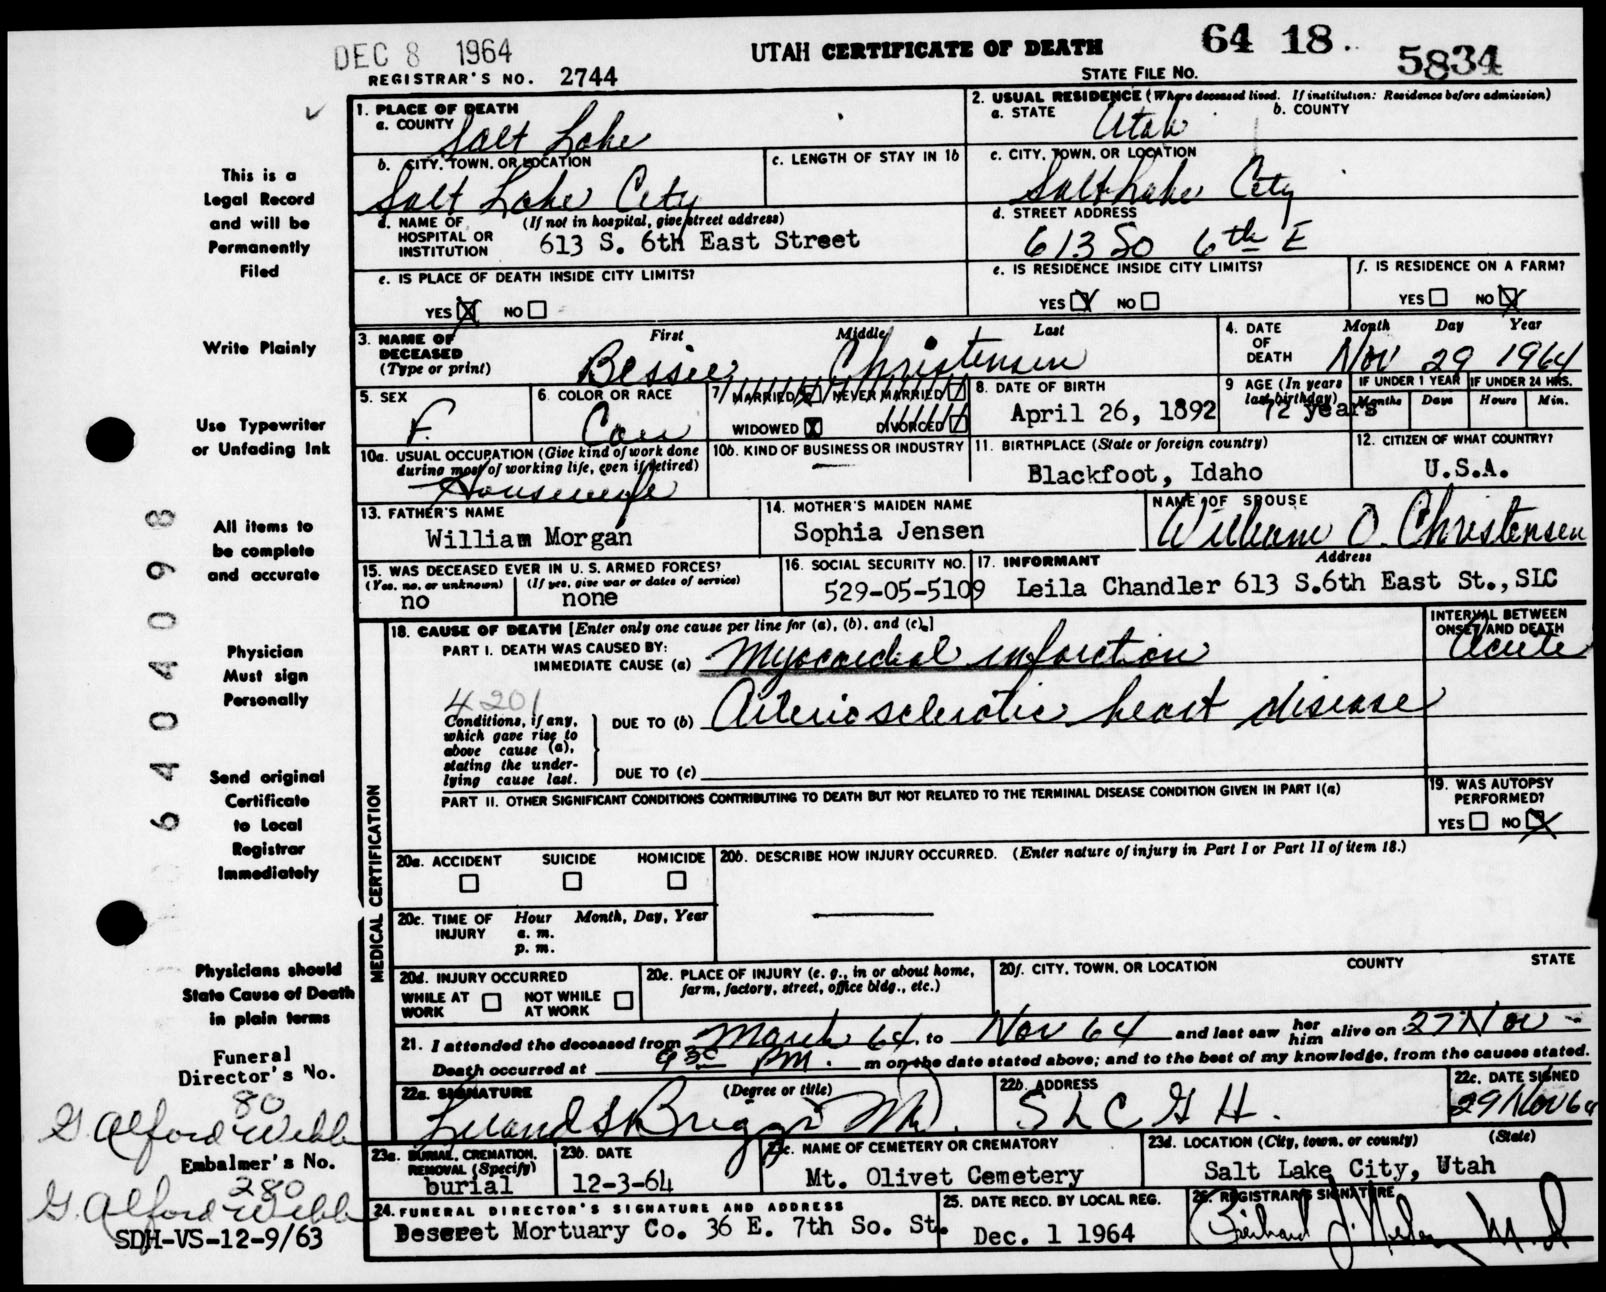 DEC 8 1964
UTAH CERTIFICATE OF DEATH
64 18.
5834
REGISTRAR'S NO. 2744
STATE FILE NO.
1. PLACE OF DEATH
a. COUNTY Salt Lake
2. USUAL RESIDENCE (Where deceased lived. If institution: Residence before admission)
a. STATE Utah b. COUNTY
b. CITY, TOWN, OR LOCATION Salt Lake City
c. LENGTH OF STAY IN 1b
c. CITY, TOWN, OR LOCATION Salt Lake City
d. NAME OF HOSPITAL OR INSTITUTION (If not in hospital, give street address)
613 S. 6th East Street
d. STREET ADDRESS
613 So 6th E
e. IS PLACE OF DEATH INSIDE CITY LIMITS?
YES X NO
e. IS RESIDENCE INSIDE CITY LIMITS?
YES X NO
f. IS RESIDENCE ON A FARM?
YES NO X
3. NAME OF DECEASED (Type or print)
First Middle Last
Bessie Christensen
4. DATE OF DEATH Month Day Year
Nov 29 1964
5. SEX
F.
6. COLOR OR RACE
Cau
7. MARRIED NEVER MARRIED
WIDOWED X DIVORCED
8. DATE OF BIRTH
April 26, 1892
9 AGE (In years last birthday)
72 years
IF UNDER 1 YEAR IF UNDER 24 HRS.
Months Days Hours Min.
10a. USUAL OCCUPATION (Give kind of work done during most of working life, even if retired)
Housewife
10b. KIND OF BUSINESS OR INDUSTRY
11. BIRTHPLACE (State or foreign country)
Blackfoot, Idaho
12. CITIZEN OF WHAT COUNTRY?
U.S.A.
13. FATHER'S NAME
William Morgan
14. MOTHER'S MAIDEN NAME
Sophia Jensen
NAME OF SPOUSE
William O. Christensen
15. WAS DECEASED EVER IN U. S. ARMED FORCES?
(Yes, no, or unknown) (If yes, give war or dates of service)
no none
16. SOCIAL SECURITY NO.
529-05-5109
17. INFORMANT Address
Leila Chandler 613 S.6th East St., SLC
MEDICAL CERTIFICATION
18. CAUSE OF DEATH [Enter only one cause per line for (a), (b), and (c).]
INTERVAL BETWEEN ONSET AND DEATH
PART I. DEATH WAS CAUSED BY:
IMMEDIATE CAUSE (a) Myocardial infarction Acute
4201
Conditions, if any, which gave rise to above cause (a), stating the underlying cause last.
DUE TO (b) Arteriosclerotic heart disease
DUE TO (c)
PART II. OTHER SIGNIFICANT CONDITIONS CONTRIBUTING TO DEATH BUT NOT RELATED TO THE TERMINAL DISEASE CONDITION GIVEN IN PART I(a)
19. WAS AUTOPSY PERFORMED?
YES NO X
20a. ACCIDENT SUICIDE HOMICIDE
20b. DESCRIBE HOW INJURY OCCURRED. (Enter nature of injury in Part I or Part II of item 18.)
20c. TIME OF INJURY Hour Month, Day, Year
a. m.
p. m.
20d. INJURY OCCURRED
WHILE AT WORK NOT WHILE AT WORK
20e. PLACE OF INJURY (e. g., in or about home, farm, factory, street, office bldg., etc.)
20f. CITY, TOWN, OR LOCATION COUNTY STATE
21. I attended the deceased from March 64. to Nov 64 and last saw her him alive on 27 Nov -
Death occurred at 9 30 PM. m on the date stated above; and to the best of my knowledge, from the causes stated.
22a. SIGNATURE (Degree or title)
Briggs MD.
22b. ADDRESS
SLCGH.
22c. DATE SIGNED
29 Nov 64
23a. BURIAL, CREMATION, REMOVAL (Specify)
burial
23b. DATE
12-3-64
23c. NAME OF CEMETERY OR CREMATORY
Mt. Olivet Cemetery
23d. LOCATION (City, town, or county) (State)
Salt Lake City, Utah
24. FUNERAL DIRECTOR'S SIGNATURE AND ADDRESS
Deseret Mortuary Co. 36 E. 7th So. St.
25. DATE RECD. BY LOCAL REG.
Dec. 1 1964
26. REGISTRAR'S SIGNATURE
This is a
Legal Record
and will be
Permanently
Filed
Write Plainly
Use Typewriter
or Unfading Ink
All items to
be complete
and accurate
Physician
Must sign
Personally
Send original
Certificate
to Local
Registrar
Immediately
Physicians should
State Cause of Death
in plain terms
Funeral
Director's No.
80
G Alford Webb
Embalmer's No.
280
G. Alford Webb
SDH-VS-12-9/63
6404098